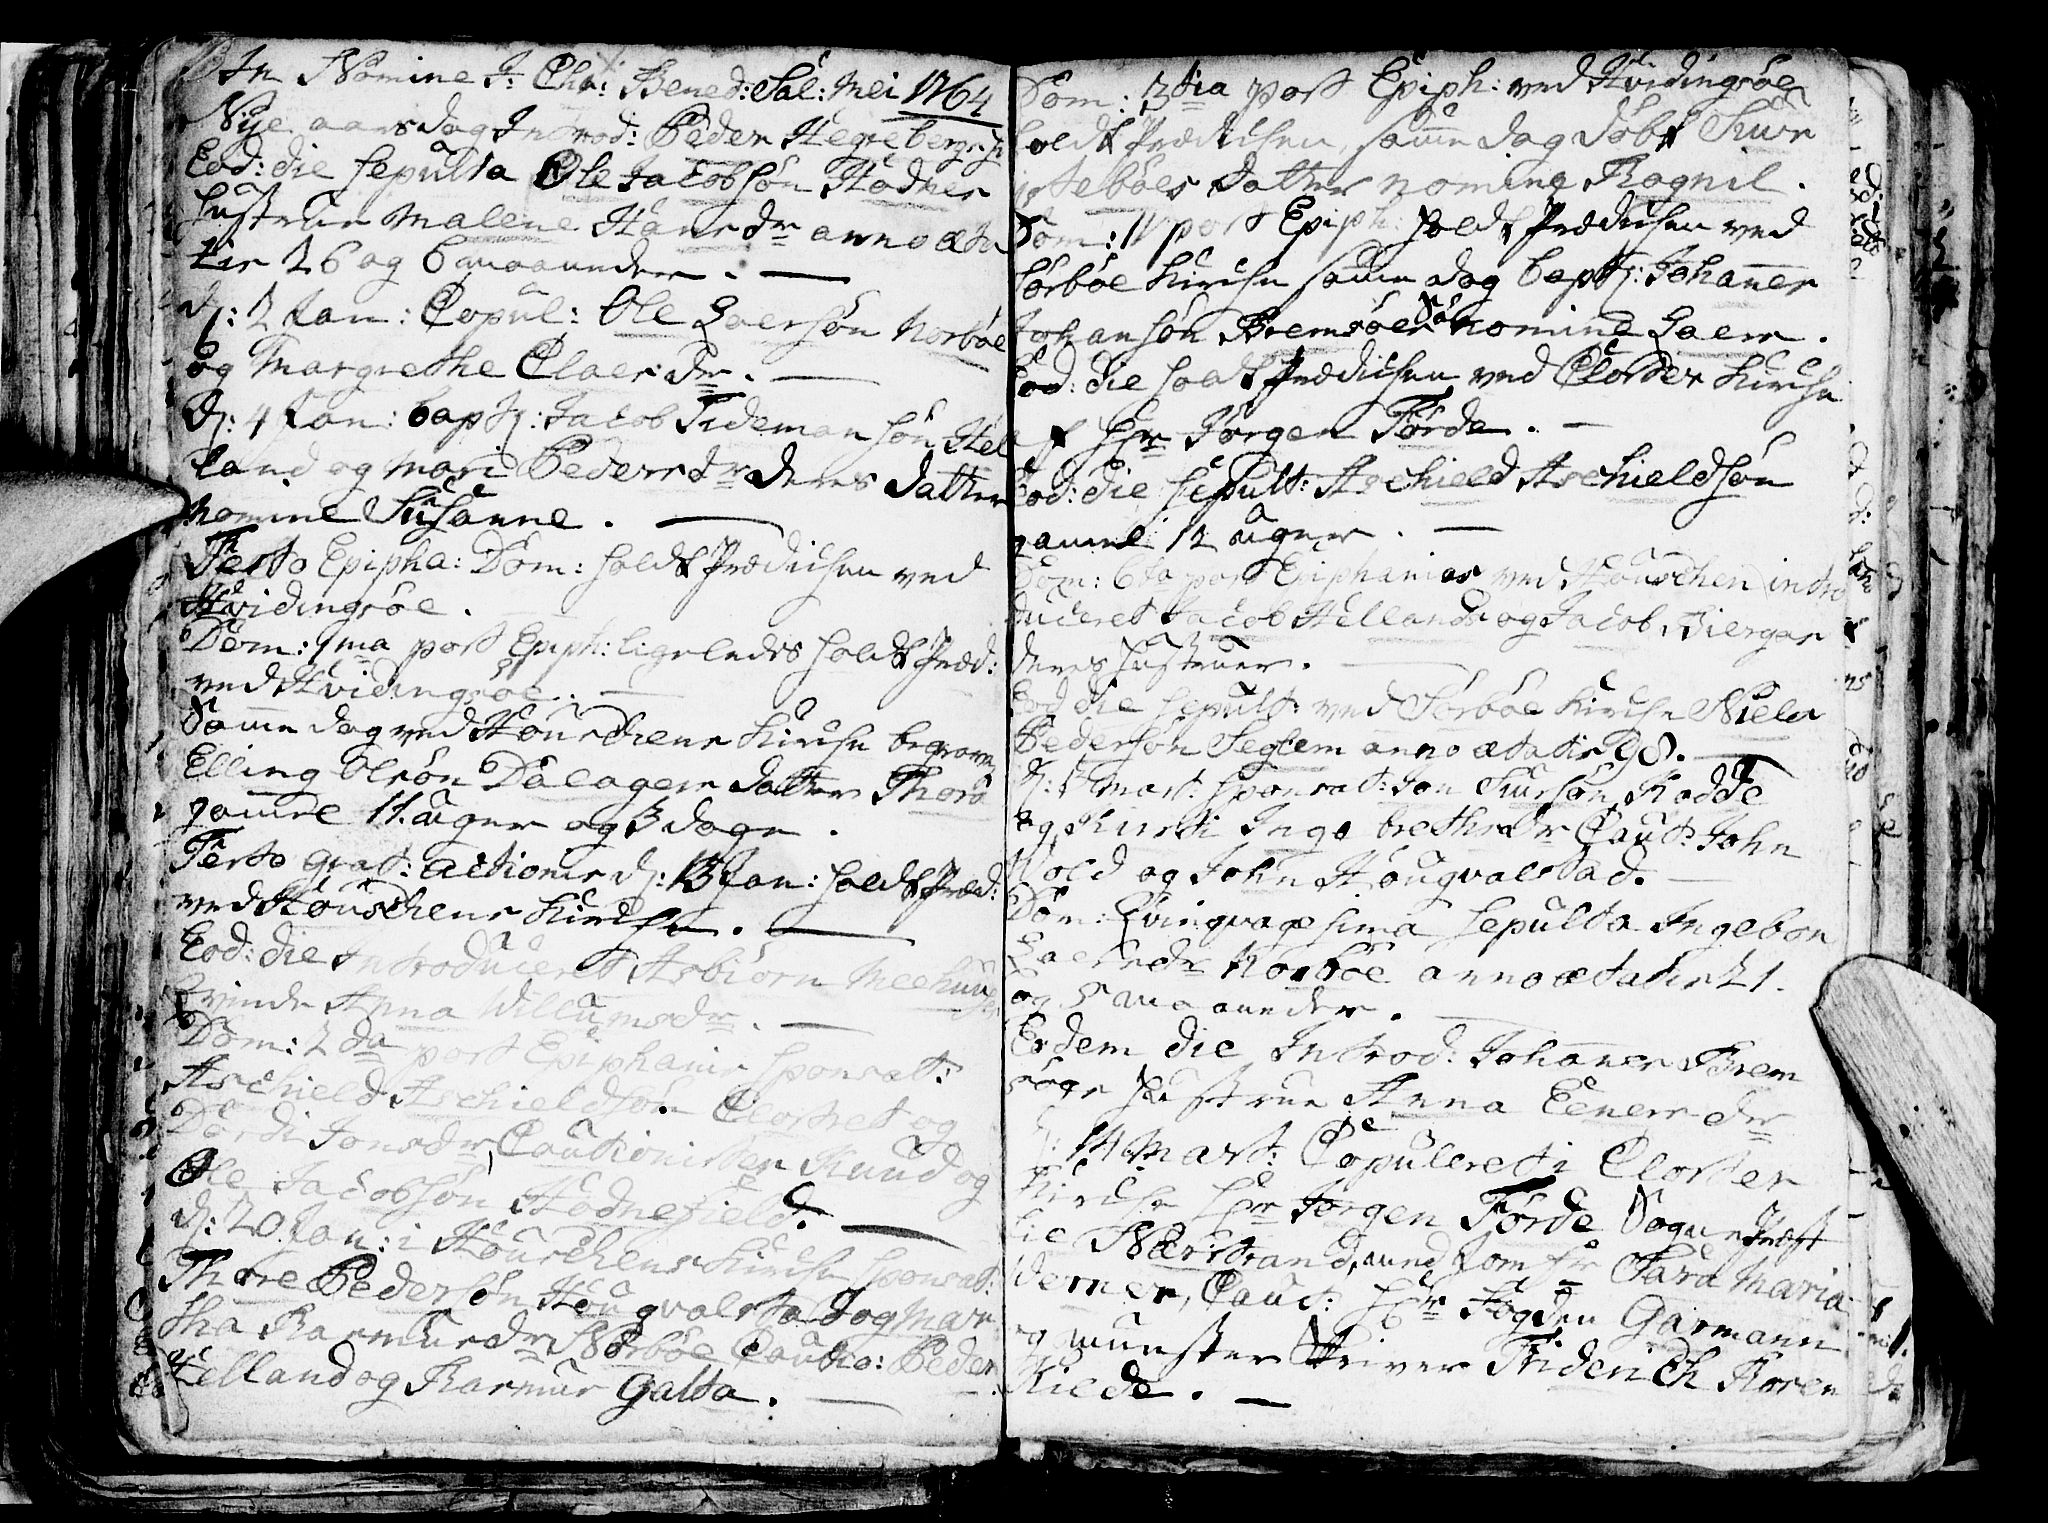 In Nomine J: Chr: Bened: Sal: Mei 1764
Nye aars dag Introd: Peder Hegrebergs h
Eod: die sepulta Ole Jacobsön Hodnes
hustrue Malene Hans dr anno æta
tis 26 og 6 maaneder. —
d: 2 Jan: Copul: Ole Laersön Norböe
og Margrethe Claes dr. —
d: 4 Jan: bapt: Jacob Tidemansön Hel
land og Mari Peders dr deres datter
nomine Susanne. —
Festo Epipha: Dom: holdt Prædichen ved
Hvidingsöe.
Dom: 1ma post Epiph: ligeledes holdt Præd:
ved Hvidingsöe. —
Samme dag ved Houschens Kirche begraven
Elling Olsön Dalagers datter Thora
gammel 11 uger og 3 dage.
Festo grat: actionis d: 13 Jan: holdt Præd:
ved Houschens Kirche. —
Eod: die Introduceret Asbiörn Meehuus
Qvinde Anna Willumsdr. —
Dom: 2da post Epiphanis sponsat:
Aschield Aschieldsön Clostret og
Dordi Jonsdr, Cautionister Knud og
Ole Jacobsön Hodnefield. —
d: 20 Jan: i Houschens Kirche sponsat:
Thore Pedersön Hougvalstad og Mar
tha Rasmusdr Norböe Cautio: Peder
Helland og Rasmus Galta. —
Dom: 3tia post Epiph: ved Hvidingsöe
holdt Prædichen, samme dag döbt Siur
isteböes datter nomine Ragnil.
Dom: 4 post Epiph: holdt Prædichen ved
Sörböe Kirche samme dag bapt: Johannes
Johansön Bremsöes Sön nomine Laers.
Eod: die holdt Prædichen ved Closter Kirche
af Hr Jörgen Förde. —
Eod: die sepult: Aschield Aschieldsön
gammel 12 uger. —
Dom: 6ta post Epiphanias ved Houschen intro
duceret Jacob Hellands og Jacob Biergas
deres hustruer. —
Eod die sepult: ved Sörböe Kirche Niels
Pedersön Seglem anno ætatis 98. —
d: 1 Mart: sponsat: Jon Siursön Kodde
og Kirsti Ingebrethsdr Caut: John
Vold og John Hougvalstad. —
Dom: Qvinqvagesima sepulta Ingebor
Laersdr Norböe anno ætatis 21.
og 5 maaneder. —
Eodem die Introd: Johannes Brem
söes hustrue Anna Eeners dr
d: 14 Mart: Copuleret i Closter
Kirche Hr Jörgen Förde Sogne Præst
til Nærstrand, med Jomfr Sara Maria
Werner, Caut: Hr Fogden Garmann
og Munster Skriver Friderich Rosen
Kilde. —